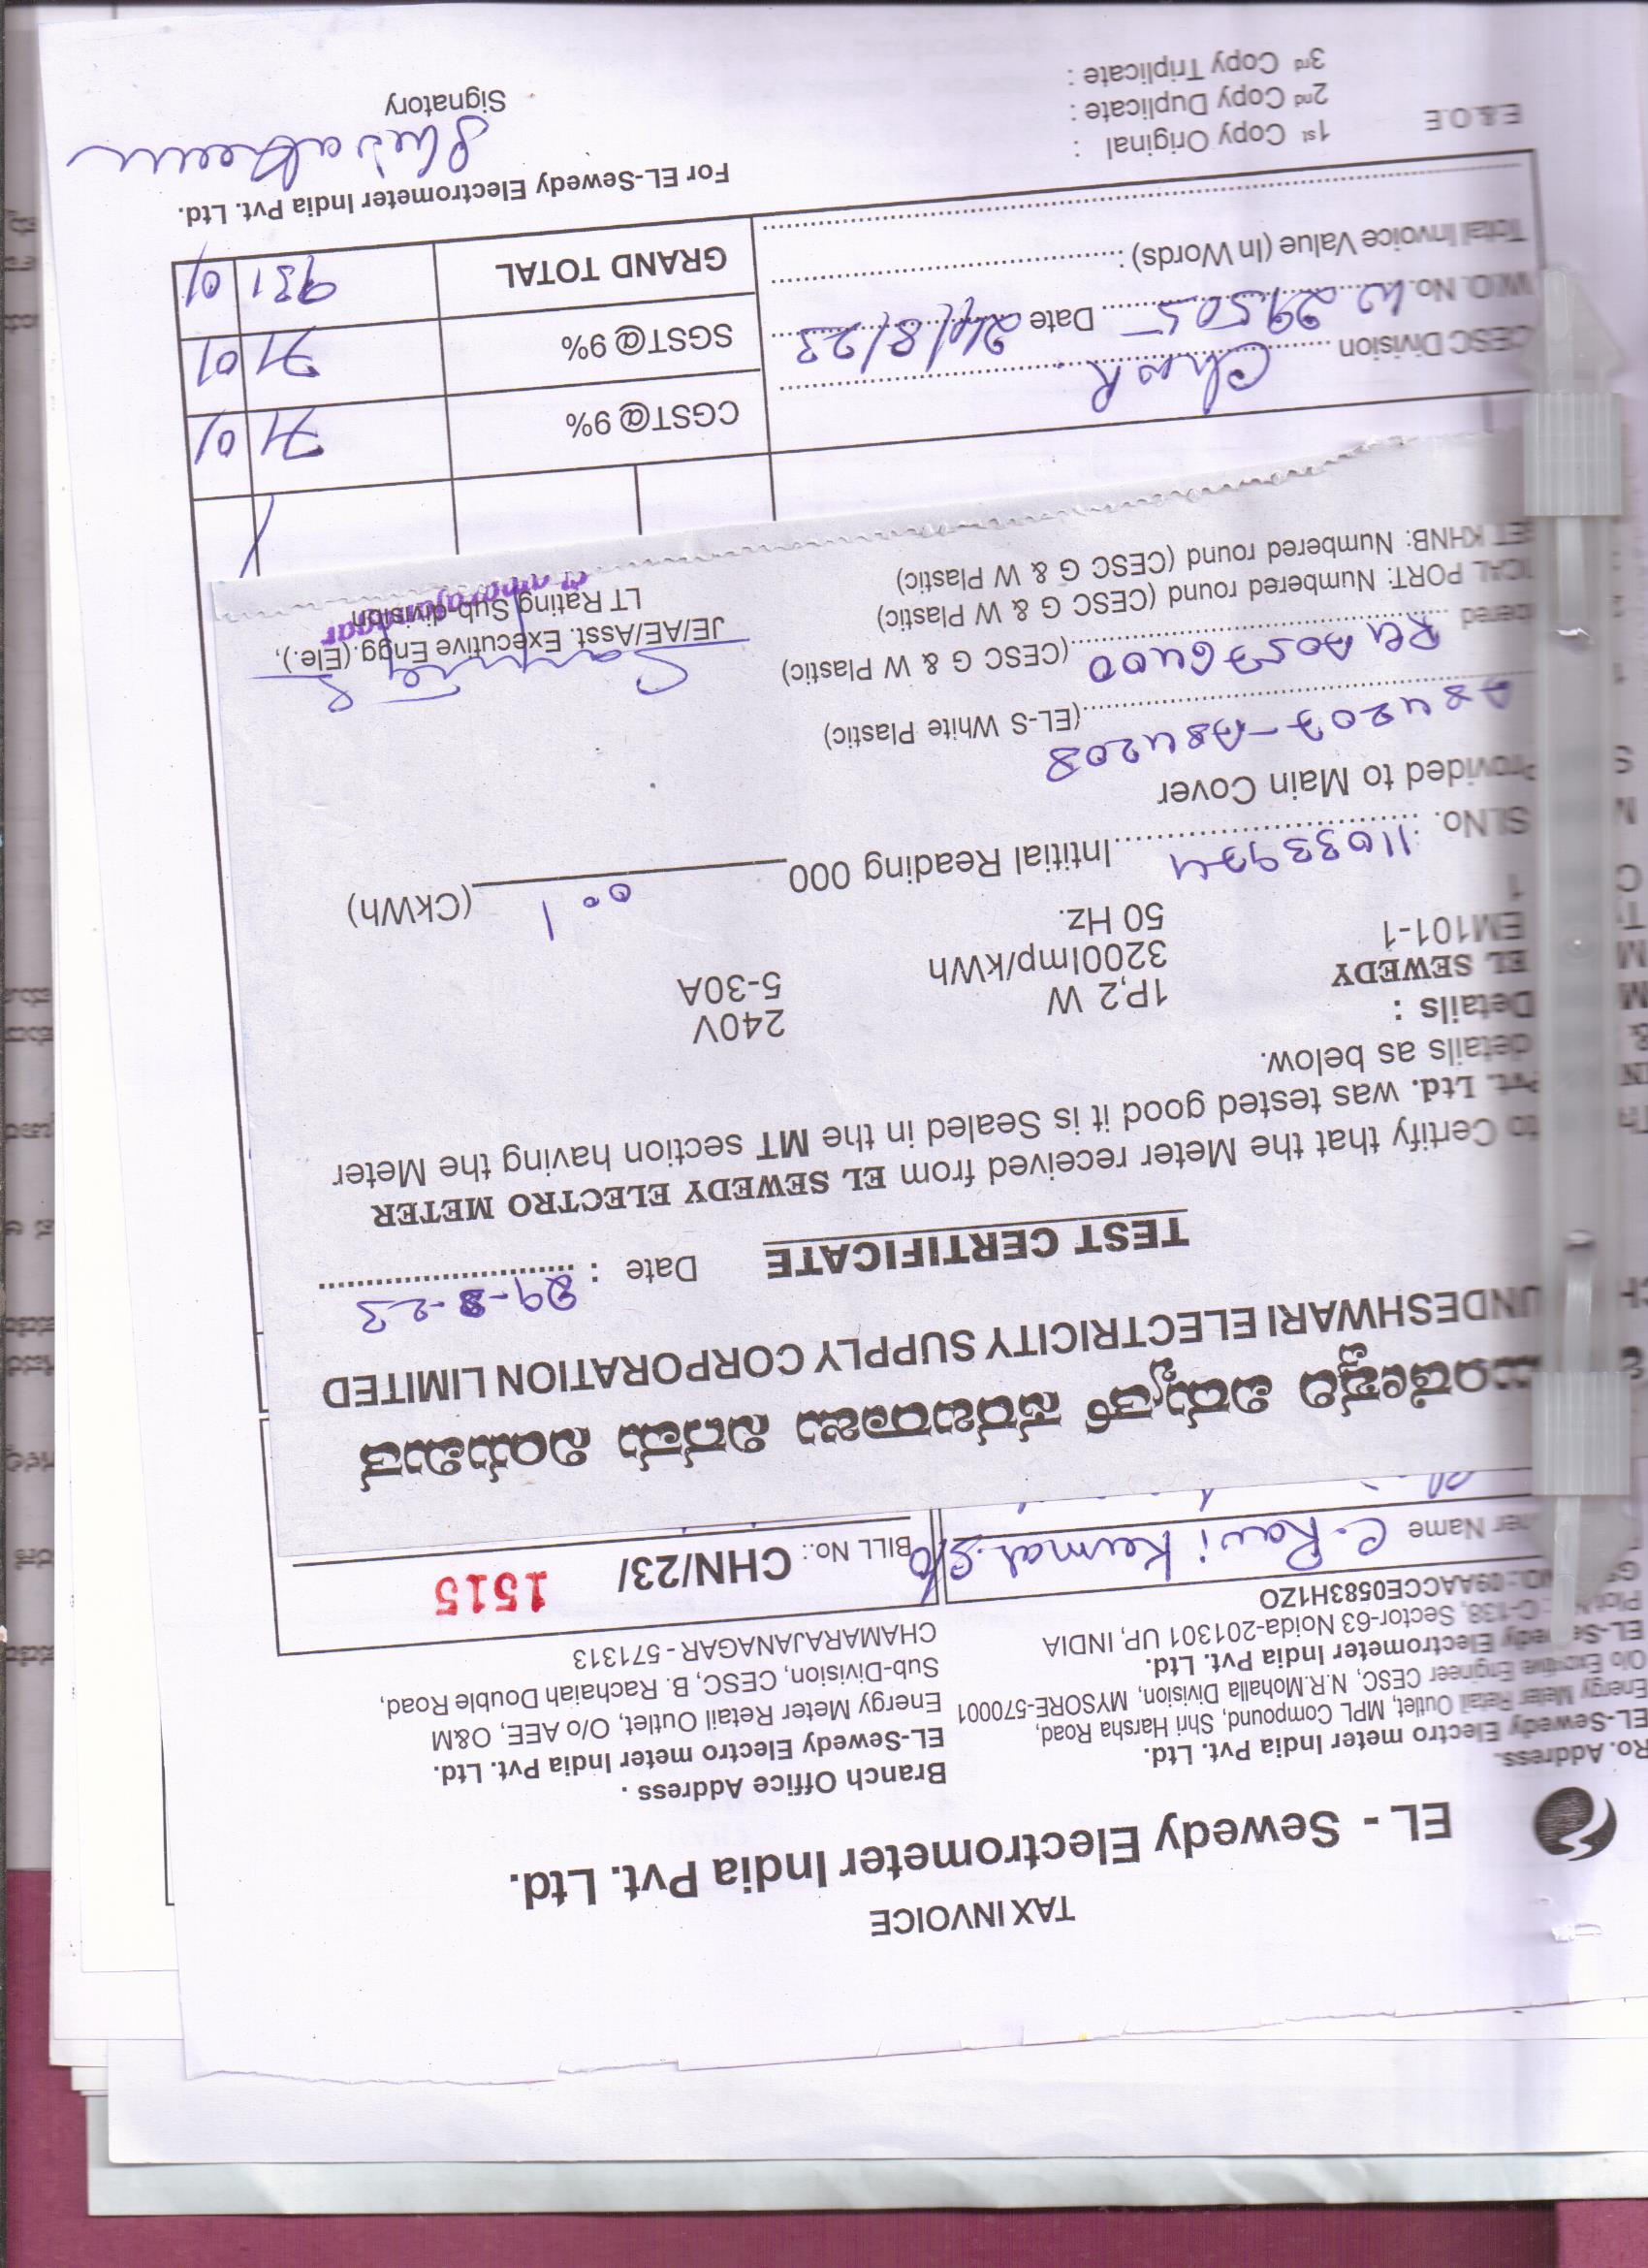 TAX INVOICE
EL - Sewedy Electrometer India Pvt. Ltd.
Ro. Address.
EL-Sewedy Electro meter India Pvt. Ltd.
Energy Meter Retail Outlet, MPL Compound, Shri Harsha Road,
O/o Engineer CESC, N.R.Mohalla Division, MYSORE-570001
EL-Sewedy Electrometer India Pvt. Ltd.
Plot C-138, Sector-63 Noida-201301 UP, INDIA
NO.: 09AACCE0583H1ZO
Branch Office Address .
EL-Sewedy Electro meter India Pvt. Ltd.
Energy Meter Retail Outlet, O/o AEE, O&M
Sub-Division, CESC, B. Rachaiah Double Road,
CHAMARAJANAGAR - 571313
er Name C. Ravi Kumar S/o
BILL No.: CHN/23/ 1515
ವಿದ್ಯುತ್ ಸರಬರಾಜು ನಿಗಮ ನಿಯಮಿತ
UNDESHWARI ELECTRICITY SUPPLY CORPORATION LIMITED
TEST CERTIFICATE Date : 29-8-23
to Certify that the Meter received from EL SEWEDY ELECTRO METER
Pvt. Ltd. was tested good it is Sealed in the MT section having the Meter
details as below.
Details :
EL SEWEDY 1P,2 W 240V
EM101-1 3200Imp/kWh 5-30A
1 50 Hz.
Sl.No. 11033974 Intitial Reading 000 001 (CkWh)
Provided to Main Cover
A84207-A84208 (EL-S White Plastic)
bered (CESC G & W Plastic)
ICAL PORT: Numbered round (CESC G & W Plastic)
ET KHNB: Numbered round (CESC G & W Plastic)
JE/AE/Asst. Executive Engg.(Ele.),
LT Rating Sub-division
CGST@ 9% 71 01
SGST@ 9% 71 01
GRAND TOTAL 931 01
CESC Division
W.O. No. 29505 Date 24/8/23
Total Invoice Value (In Words) :
For EL-Sewedy Electrometer India Pvt. Ltd.
E.& O.E
1st Copy Original :
2nd Copy Duplicate :
3rd Copy Triplicate :
Signatory